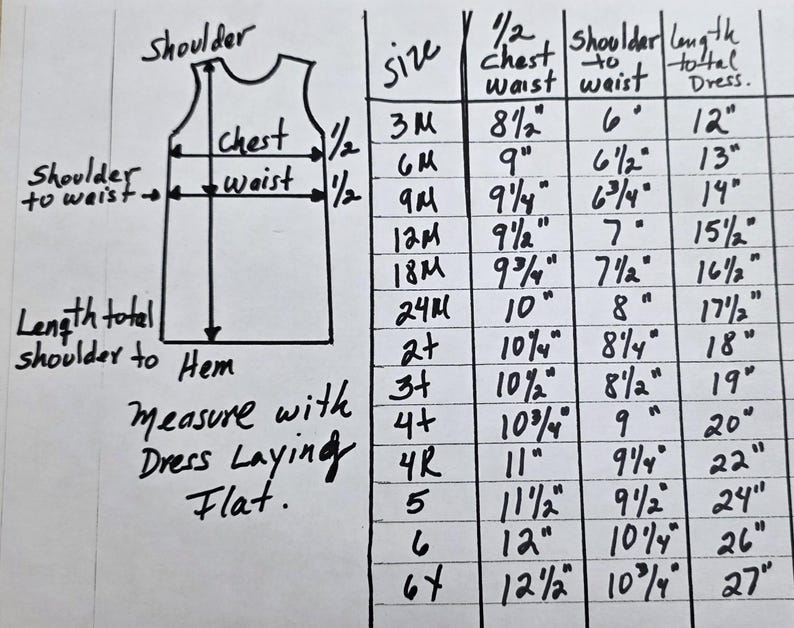 Shoulder
Chest 1/2
Shoulder
to waist
waist 1/2
Length total
shoulder to
Hem
Measure with
Dress Laying
Flat.
Size | 1/2 Chest waist | Shoulder to waist | Length total Dress.
3M | 8 1/2" | 6" | 12"
6M | 9" | 6 1/2" | 13"
9M | 9 1/4" | 6 3/4" | 14"
12M | 9 1/2" | 7" | 15 1/2"
18M | 9 3/4" | 7 1/2" | 16 1/2"
24M | 10" | 8" | 17 1/2"
2t | 10 1/4" | 8 1/4" | 18"
3t | 10 1/2" | 8 1/2" | 19"
4t | 10 3/4" | 9" | 20"
4R | 11" | 9 1/4" | 22"
5 | 11 1/2" | 9 1/2" | 24"
6 | 12" | 10 1/4" | 26"
6X | 12 1/2" | 10 3/4" | 27"